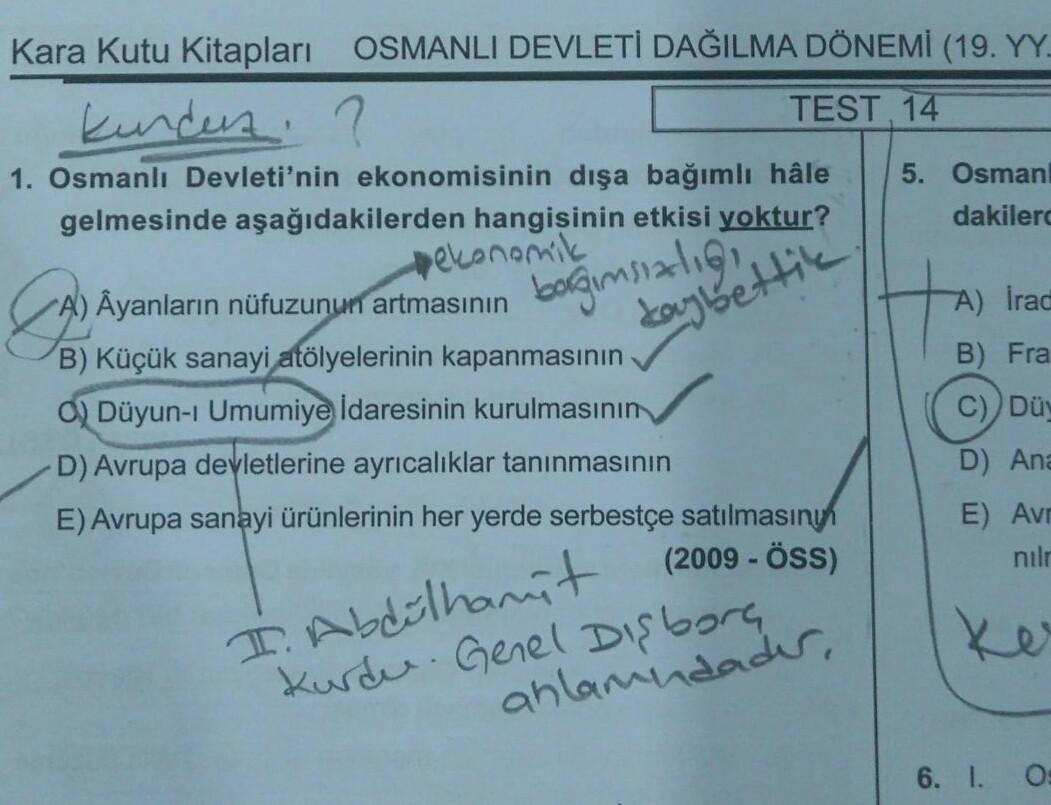 Kara Kutu Kitapları OSMANLI DEVLETİ DAĞILMA DÖNEMİ (19. YY.
TEST 14
?
1. Osmanlı Devleti'nin ekonomisinin dışa bağımlı hâle
gelmesinde aşağıdakilerden hangisinin etkisi yoktur?
ekonomik
bağımsızlığı
kaybettik
A) Âyanların nüfuzunun artmasının
B) Küçük sanayi atölyelerinin kapanmasının
C) Düyun-ı Umumiye İdaresinin kurulmasının
D) Avrupa devletlerine ayrıcalıklar tanınmasının
E) Avrupa sanayi ürünlerinin her yerde serbestçe satılmasının
(2009 - ÖSS)
II. Abdülhamit
kurdu. Genel Dış borç
anlamındadır.
5. Osmanl
dakilerd
A) İrad
B) Fra
C) Düy
D) Ana
E) Avr
nılr
Ke
6. I. Os